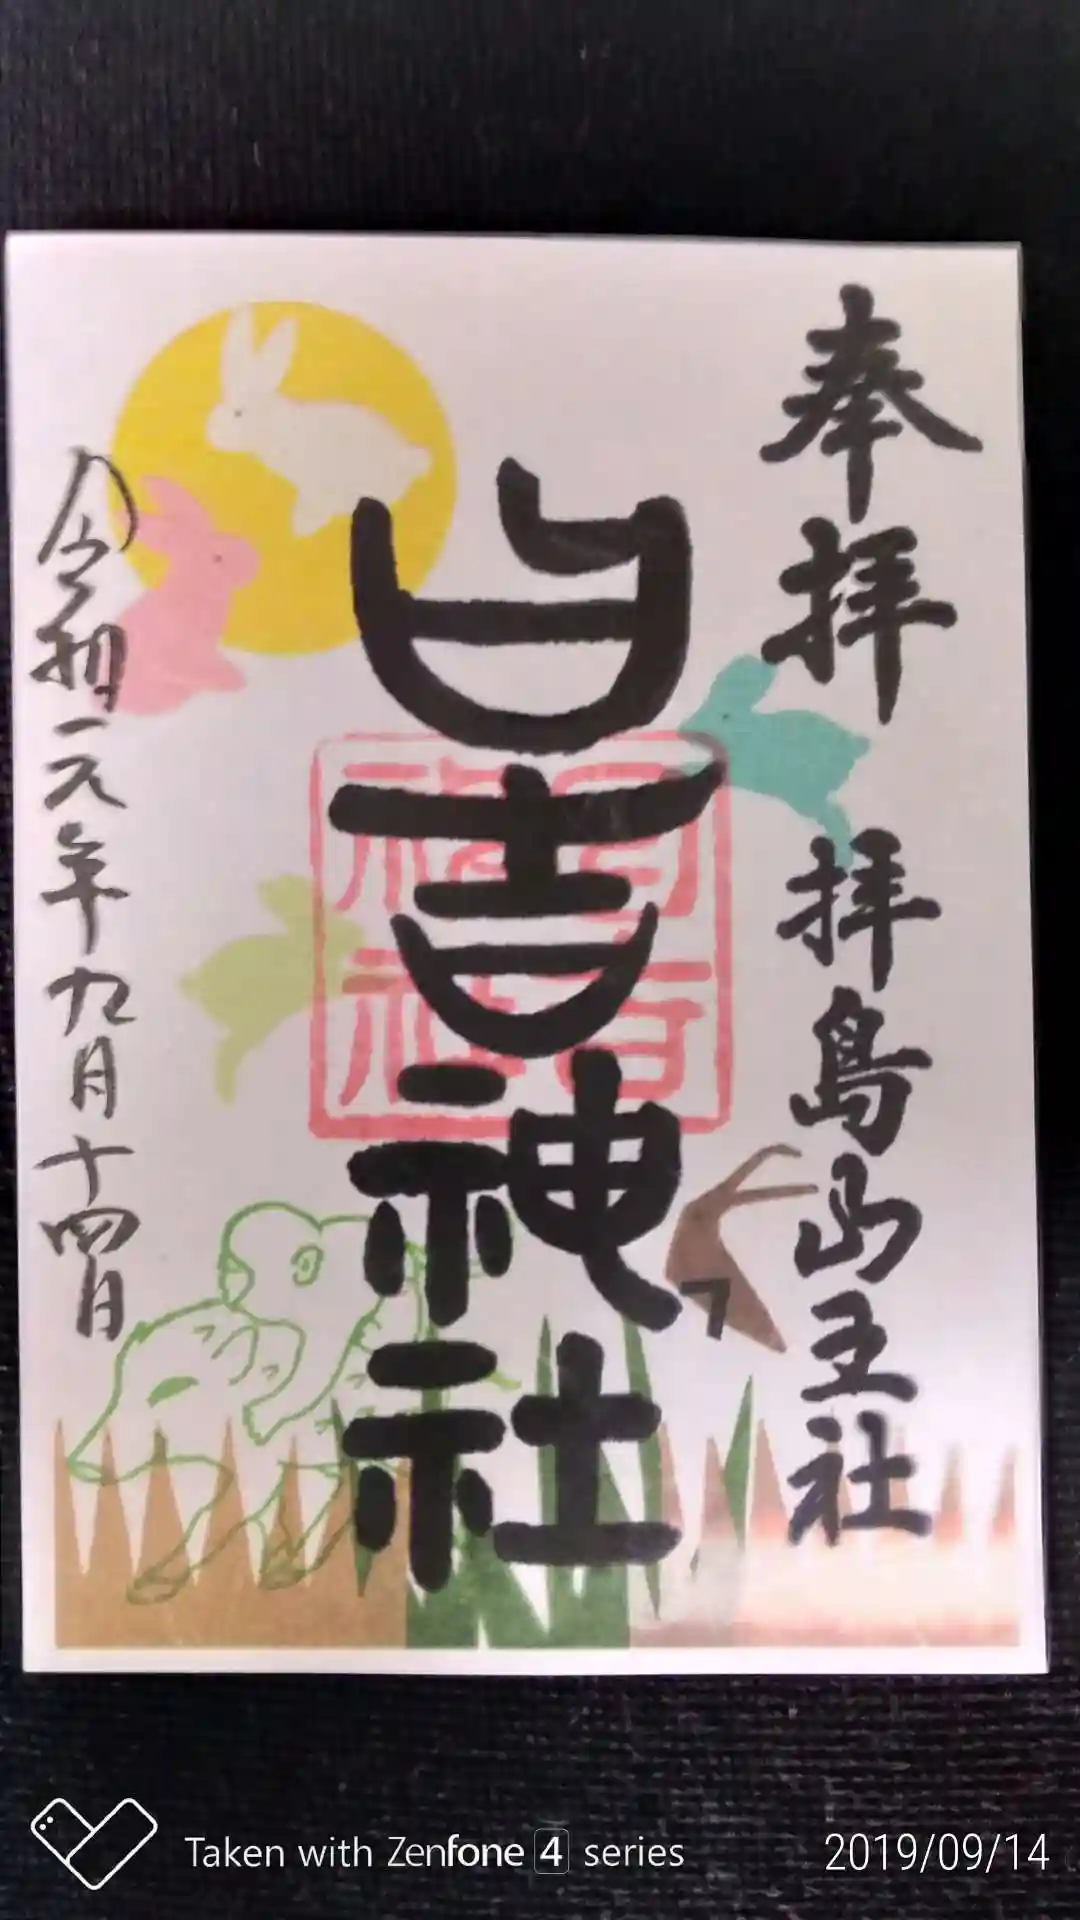 奉拝 拝島山王社
日吉神社
日吉神社
令和元年九月十四日
Taken with Zenfone 4 series
2019/09/14